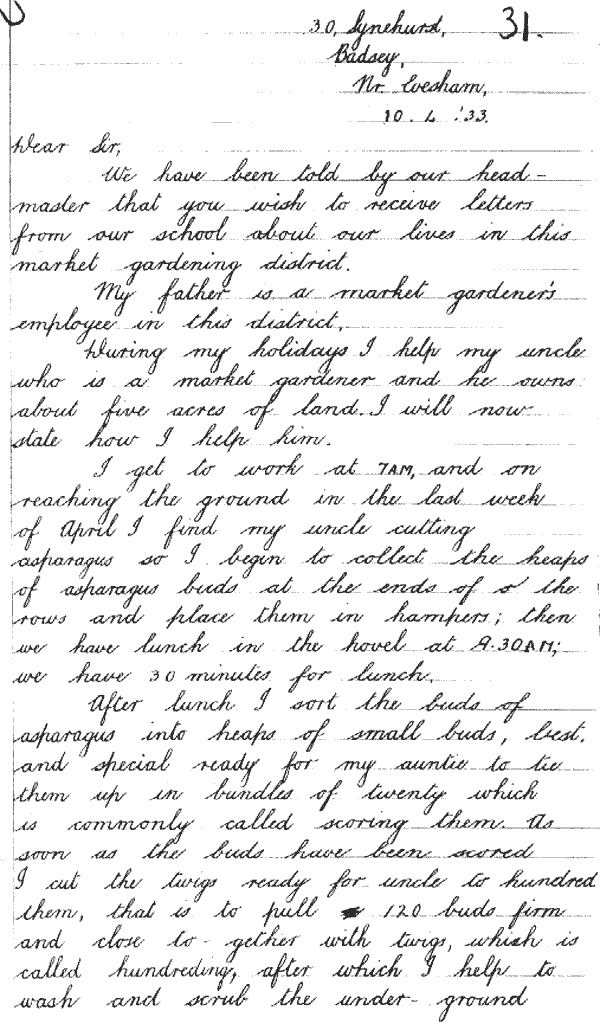 31.
30, Synehurst,
Badsey,
Nr. Evesham,
10. 4. '33.
Dear Sir,
We have been told by our head-
master that you wish to receive letters
from our school about our lives in this
market gardening district.
My father is a market gardener's
employee in this district.
During my holidays I help my uncle
who is a market gardener and he owns
about five acres of land. I will now
state how I help him.
I get to work at 7AM, and on
reaching the ground in the last week
of April I find my uncle cutting
asparagus so I begin to collect the heaps
of asparagus buds at the ends of the
rows and place them in hampers; then
we have lunch in the hovel at 9.30AM;
we have 30 minutes for lunch.
After lunch I sort the buds of
asparagus into heaps of small buds, best.
and special ready for my auntie to tie
them up in bundles of twenty which
is commonly called scoring them. As
soon as the buds have been scored
I cut the twigs ready for uncle to hundred
them, that is to pull 120 buds firm
and close to-gether with twigs, which is
called hundreding, after which I help to
wash and scrub the under-ground